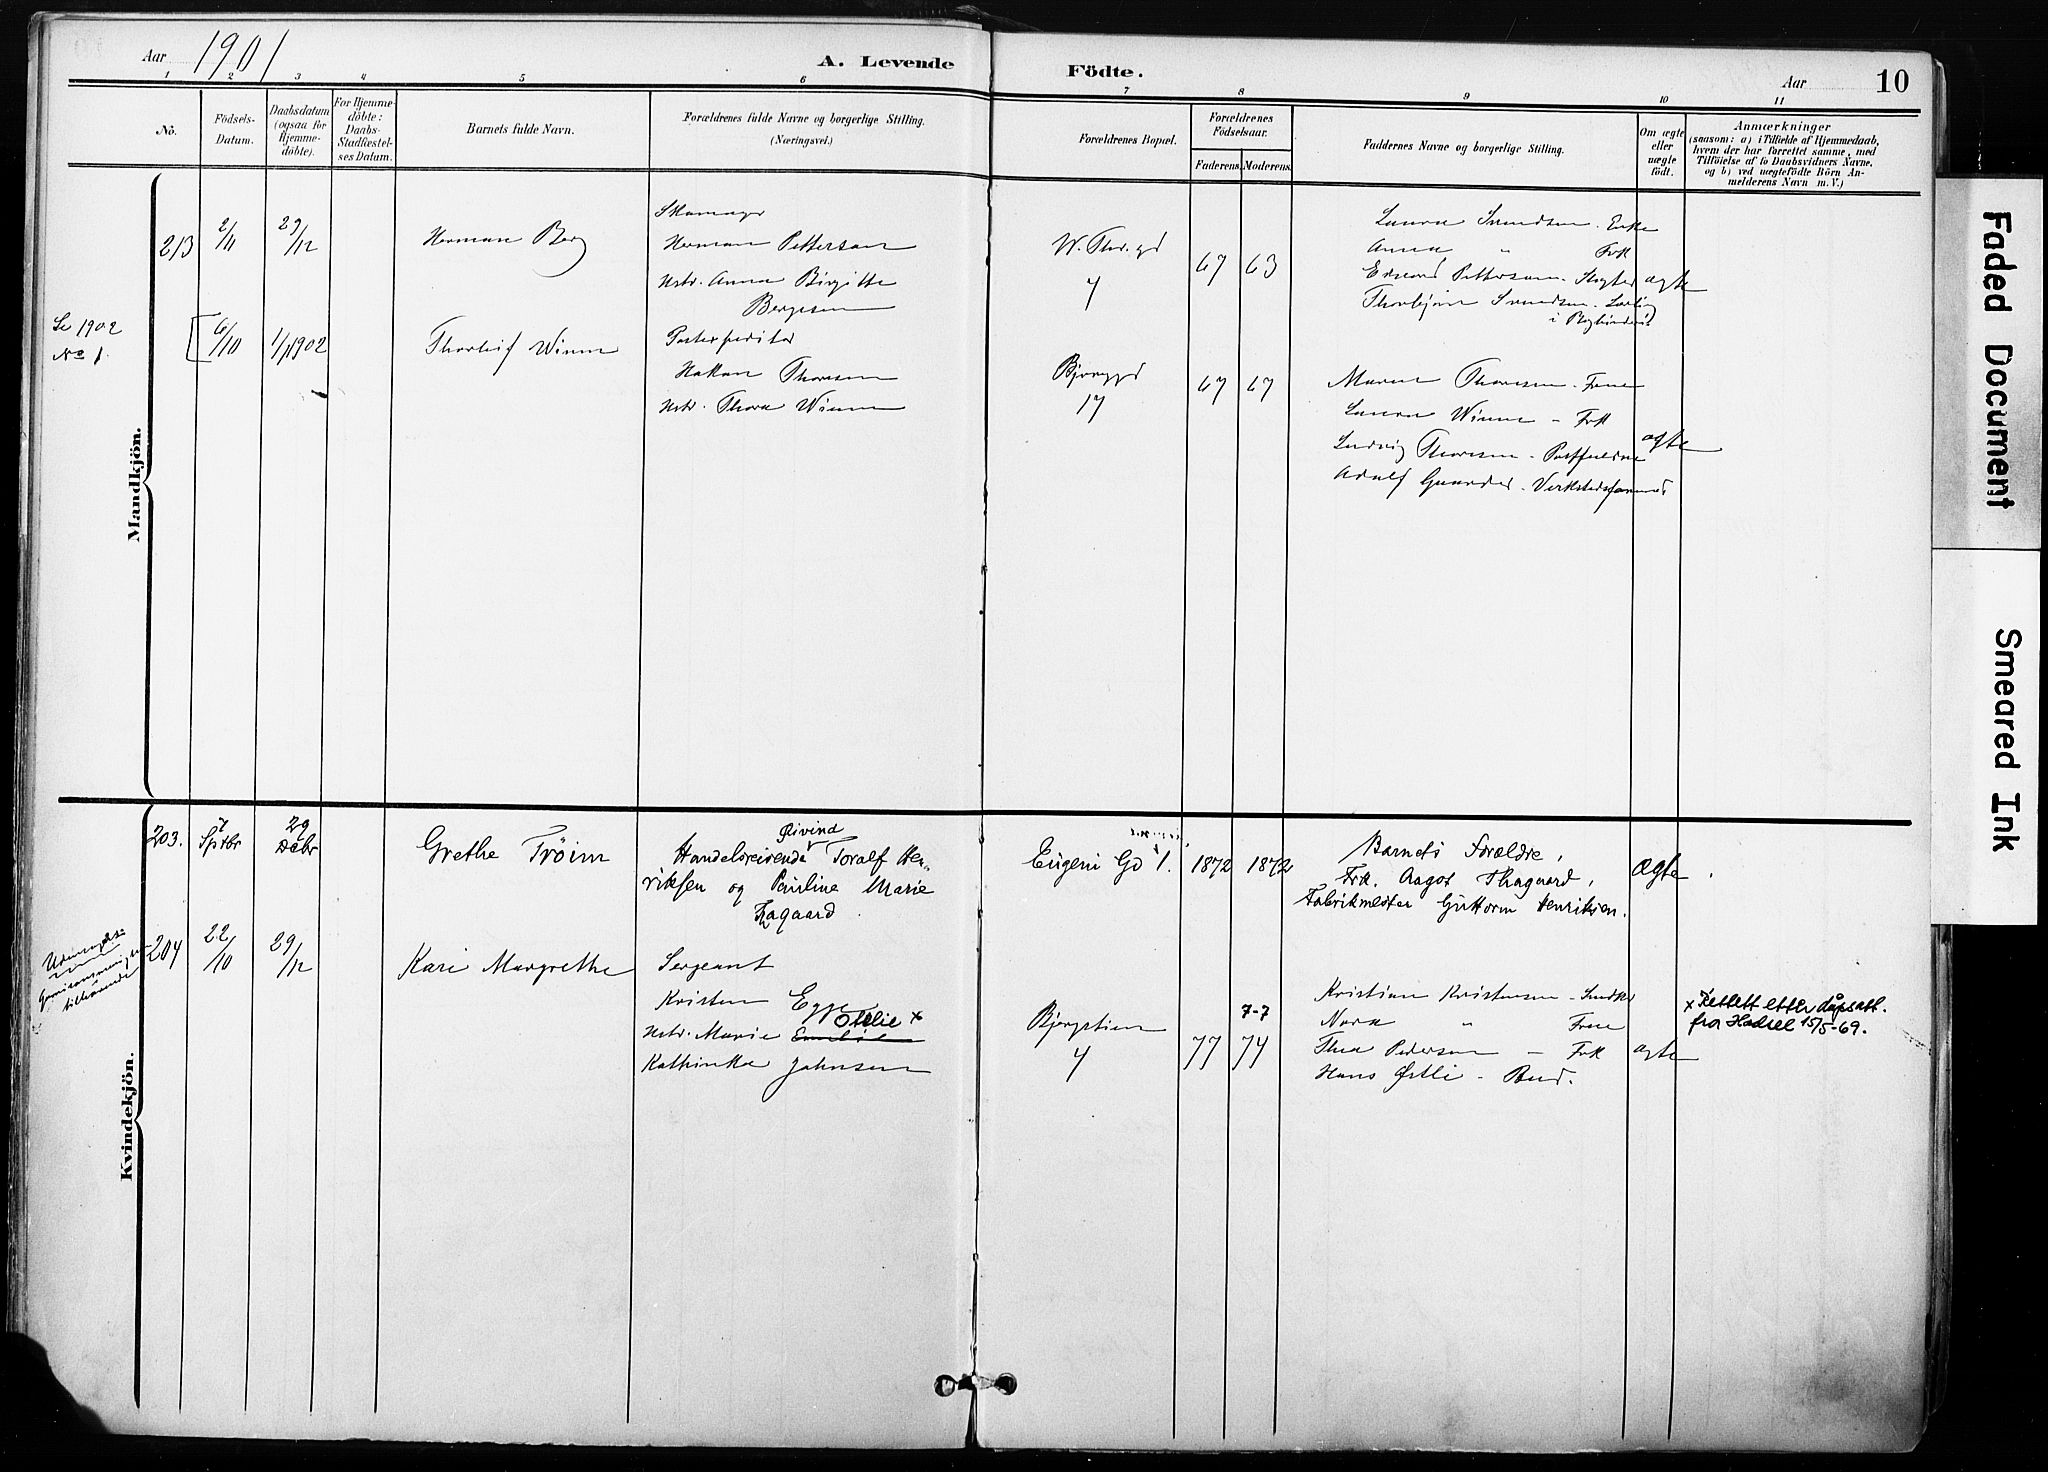 Aar 1901
A. Levende Födte.
Aar
10
1 2 3 4 5 6 7 8 9 10 11
No.
Födsels-
Datum.
Daabsdatum
(ogsaa for
Hjemme-
döbte).
For Hjemme-
döbte:
Daabs-
Stadfæstel-
ses Datum.
Barnets fulde Navn.
Forældrenes fulde Navne og borgerlige Stilling.
(Næringsvei.)
Forældrenes Bopæl.
Forældrenes
Födselsaar.
Faderens. Moderens.
Faddernes Navne og borgerlige Stilling.
Om ægte
eller
uægte
födt.
Anmærkninger
(saasom: a) i Tilfælde af Hjemmedaab,
hvem der har forrettet samme, med
Tilföielse af to Daabsvidners Navne,
og b) ved uægtefödte Börn An-
melderens Navn m. V.)
Mandkjön.
213
2/11
29/12
Herman Berg
Skomager
Herman Pettersen
Hstr. Anna Birgitte
Bergesen
W. Thr. gd
4
67 63
Laura Svendsen. Enke
Anna " Frk
Edvard Pettersen.
Thorbjörn Svendsen.
ægte
Se 1902
No 1.
6/10
1/1 1902
Thorleif Winne
Postexpeditör
Hakon Thoresen
Hstr. Thora Winne
Bjerggd
17
67 67
Maren Thoresen. Frue
Laura Winne - Frk
Ludvig Thoresen -
Adolf
ægte
Kvindekjön.
203.
7
Sptbr
29
Decbr
Grethe Tröim
Øivind
Handelsreisende Toralf Hen-
riksen og Pauline Marie
Thagaard
Eugeni Gd 1.
1872 1872
Barnets Forældre,
Frk. Aagot Thagaard,
Fabrikmester Guttorm Henriksen.
ægte
204
tilhörende
22/10
29/12
Kari Margrethe
Sergeant
Kristen Egge
Otelie x
Hstr. Marie
Kathinka Johnsen
Bjergstien
4
7-7
77 74
Kristian Kristensen -
Nora " Frue
Thea Pedersen - Frk
Hans Østli - Bud.
ægte
x Rettett etter dåpsatt.
fra Hadsel 15/5-69.
Faded Document
Smeared Ink